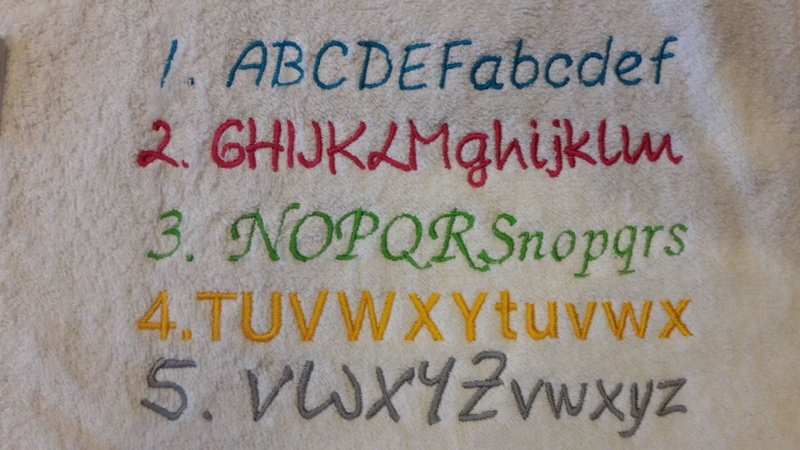 1. ABCDEFabcdef
2. GHIJKLMghijklm
3. NOPQRSnopqrs
4.TUVWXYtuvwx
5. VWXYZvwxyz